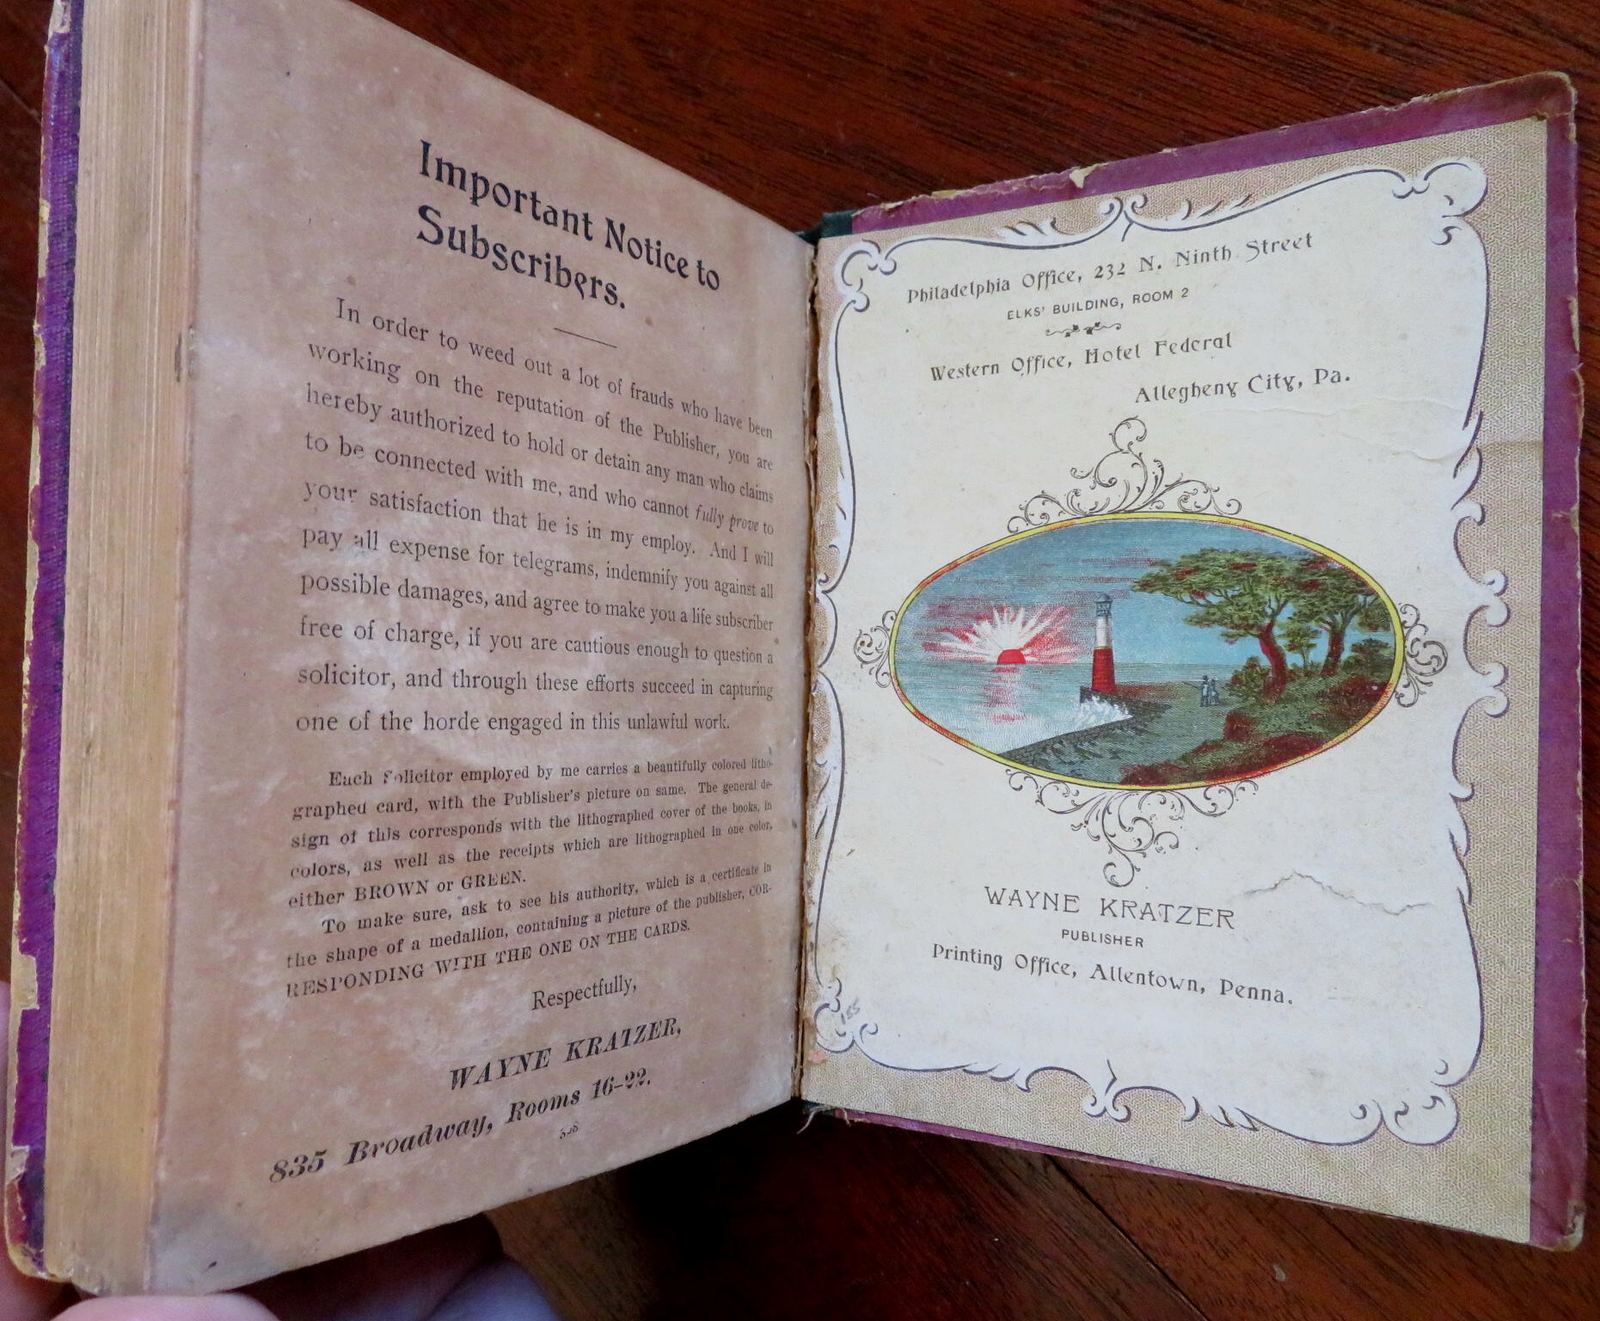 Important Notice to
Subscribers.
In order to weed out a lot of frauds who have been
working on the reputation of the Publisher, you are
hereby authorized to hold or detain any man who claims
to be connected with me, and who cannot fully prove to
your satisfaction that he is in my employ. And I will
pay all expense for telegrams, indemnify you against all
possible damages, and agree to make you a life subscriber
free of charge, if you are cautious enough to question a
solicitor, and through these efforts succeed in capturing
one of the horde engaged in this unlawful work.
Each solicitor employed by me carries a beautifully colored litho-
graphed card, with the Publisher's picture on same. The general de-
sign of this corresponds with the lithographed cover of the books, in
colors, as well as the receipts which are lithographed in one color,
either BROWN or GREEN.
To make sure, ask to see his authority, which is a certificate in
the shape of a medallion, containing a picture of the publisher, COR-
RESPONDING WITH THE ONE ON THE CARDS.
Respectfully,
WAYNE KRATZER,
835 Broadway, Rooms 16-22.
Philadelphia Office, 232 N. Ninth Street
ELKS' BUILDING, ROOM 2
Western Office, Hotel Federal
Allegheny City, Pa.
WAYNE KRATZER
PUBLISHER
Printing Office, Allentown, Penna.